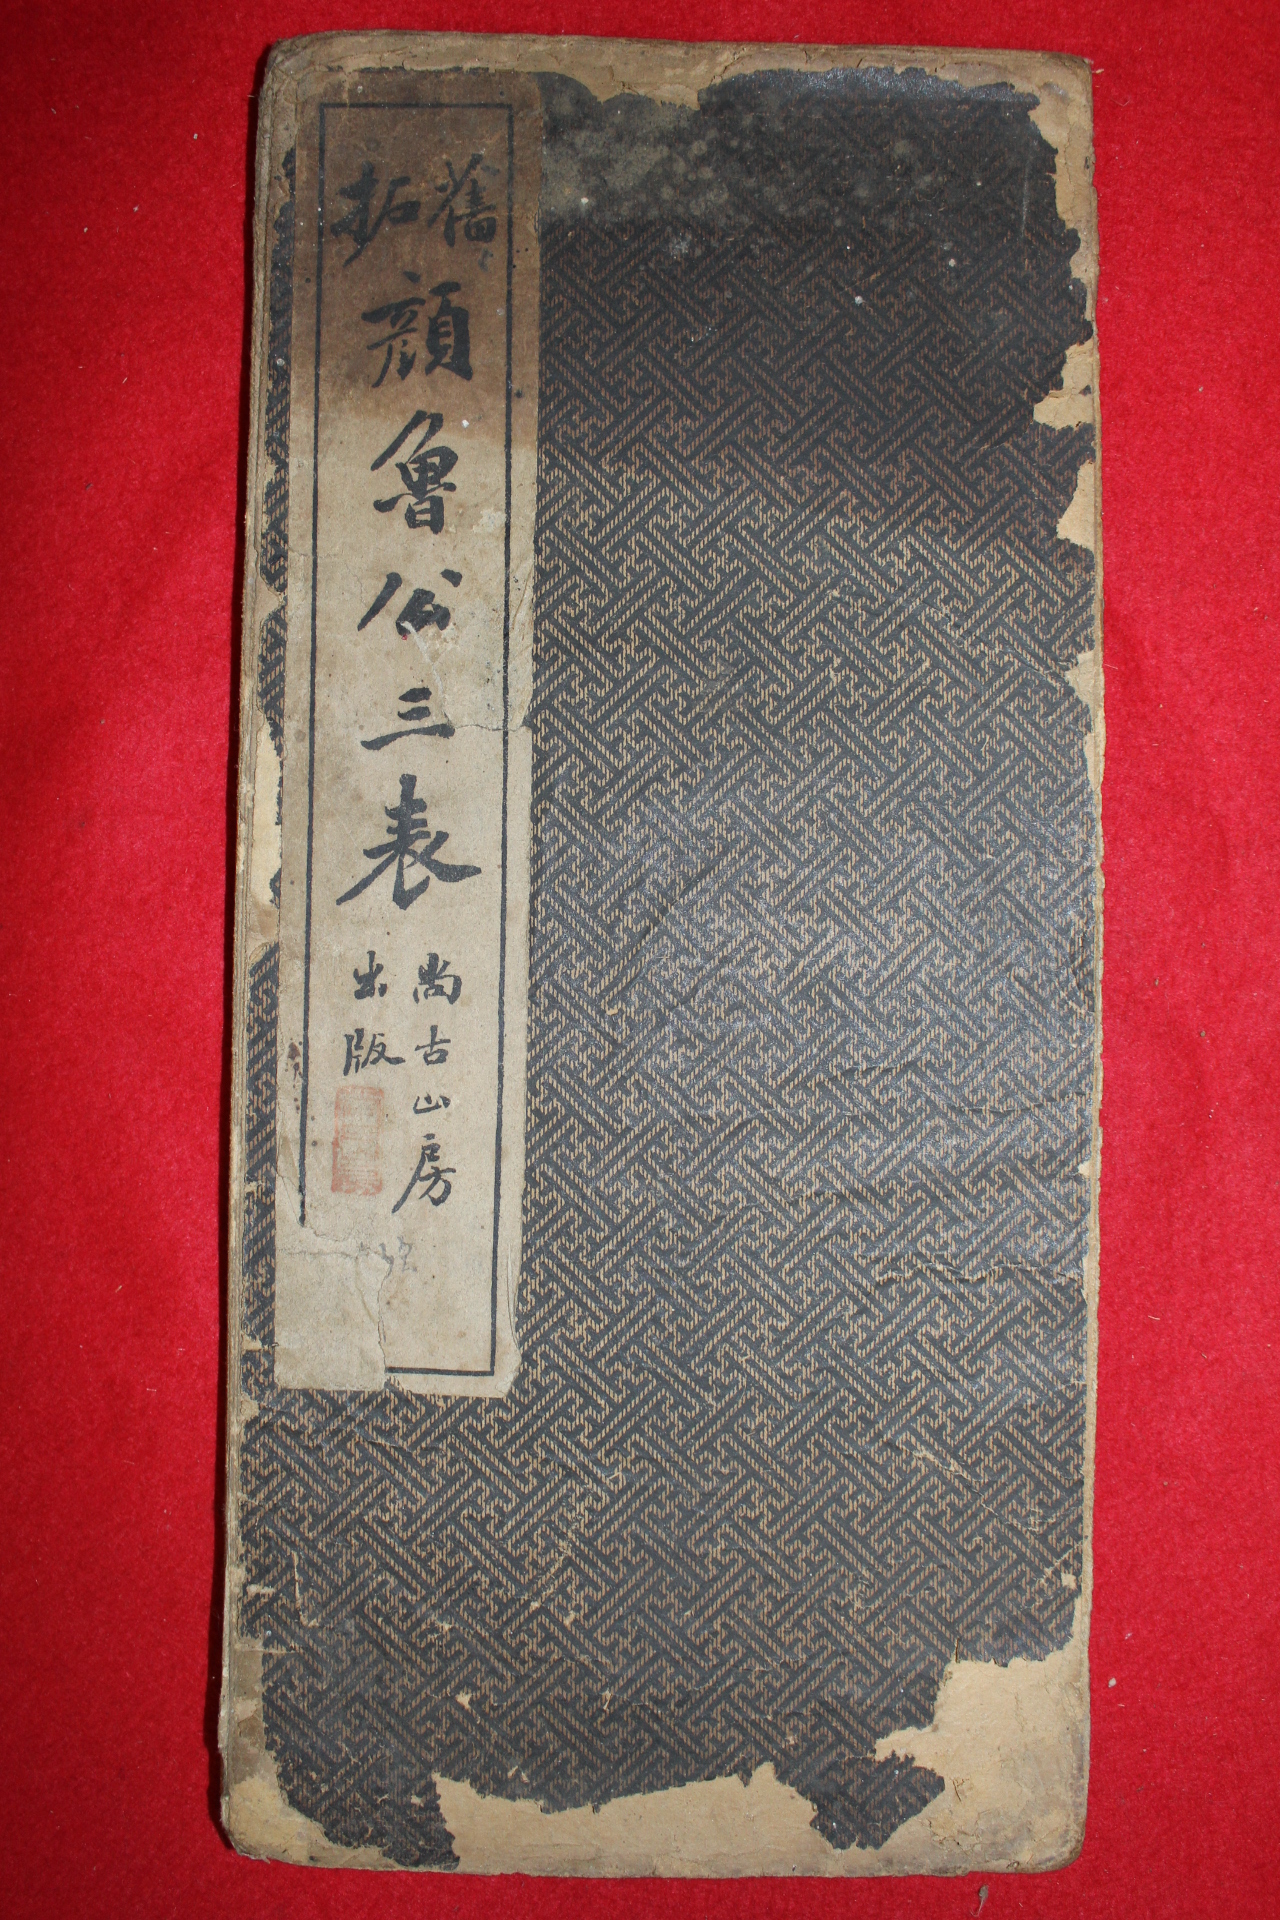 舊拓
顔魯公三表
尚古山房
出版